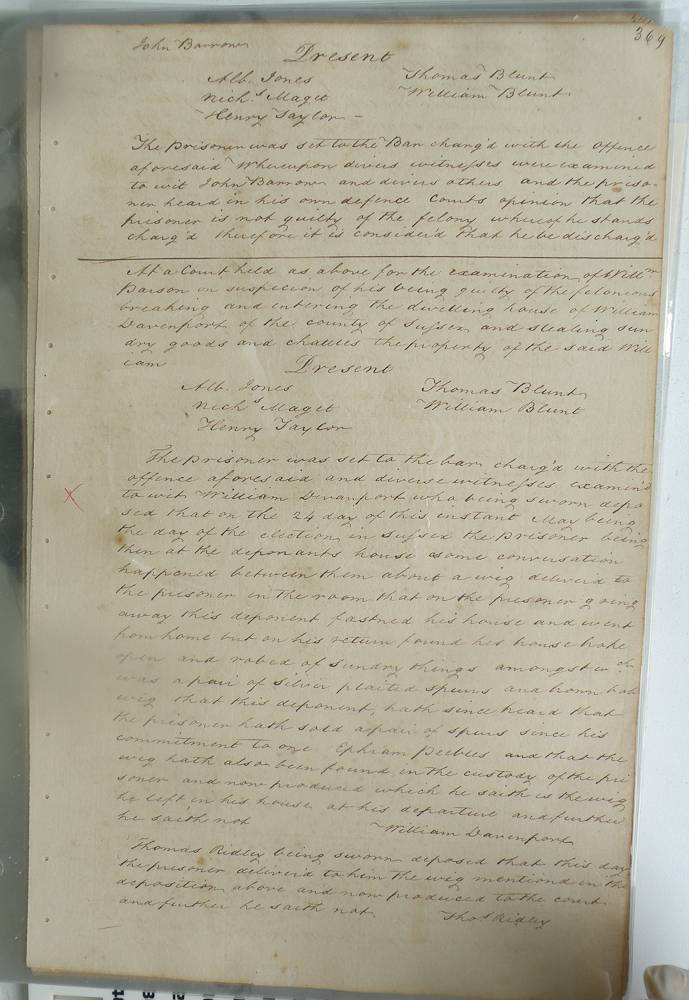 369
John Barrow
Present
Alb. Jones Thomas Blunt
Nichs Maget William Blunt
Henry Taylor
The prisoner was set to the Bar charg'd with the offence
aforesaid Whereupon divers witnesses were examined
to wit John Barrow and divers others and the priso-
ner heard in his own defence Courts opinion that the
prisoner is not guilty of the felony whereof he stands
charg'd therefore it is consider'd that he be discharg'd
At a Court held as above for the examination of Willm
Parson on suspicion of his being guilty of the felonious
breaking and entering the dwelling house of William
Davenport of the county of Sussex and stealing sun
dry goods and chattles the property of the said Will
iam
Present
Alb. Jones Thomas Blunt
Nichs Maget William Blunt
Henry Taylor
The prisoner was set to the bar charg'd with the
offence aforesaid and diverse witnesses examin'd
to wit William Davenport who being sworn depo
sed that on the 24 day of this instant May being
the day of the election in Sussex the prisoner being
then at the deponants house some conversation
happened between them about a wig deliver'd to
the prisoner in the room that on the prisoner going
away this deponent fastned his house and went
from home but on his return found his house broke
open and robed of sundry things amongst wch
was a pair of silver plaited spurs and a bob
wig that this deponent, hath since heard that
the prisoner hath sold a pair of spurs since his
commitment to one Ephram Peebles and that the
wig hath also been found in the custody of the pri
soner and now produced which he saith is the wig
he left in his house at his departure and further
he saith not William Davenport
Thomas Ridley being sworn deposed that this day
the prisoner deliver'd to him the wig mentiond in the
deposition above and now produced to the court
and further he saith not Thos Ridley